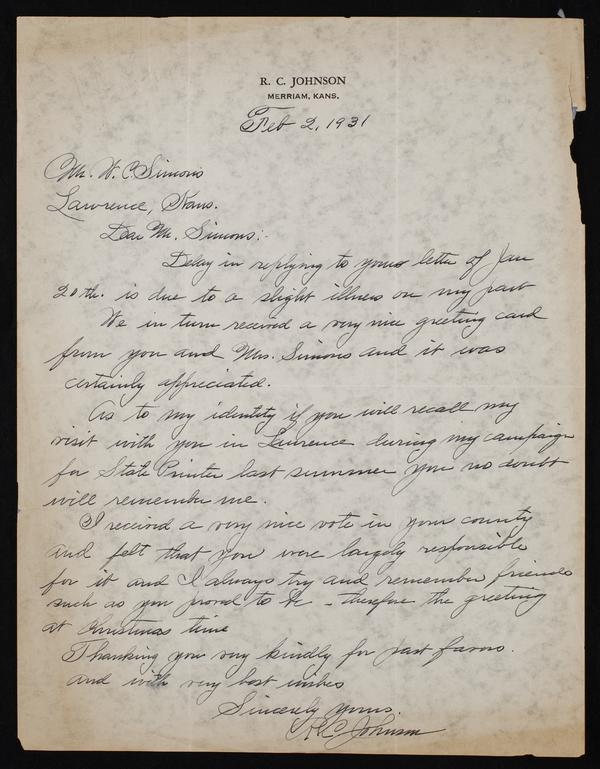 R. C. JOHNSON
MERRIAM, KANS.
Feb 2, 1931
Mr. W. C. Simons
Lawrence, Kans.
Dear Mr. Simons:-
Delay in replying to your letter of Jan
20th. is due to a slight illness on my part
We in turn received a very nice greeting card
from you and Mrs. Simons and it was
certainly appreciated.
As to my identity if you will recall my
visit with you in Lawrence during my campaign
for State Printer last summer you no doubt
will remember me.
I received a very nice vote in your county
and felt that you were largely responsible
for it and I always try and remember friends
such as you proved to be - therefore the greeting
at Christmas time
Thanking you very kindly for past favors.
and with very best wishes
Sincerely yours.
R C Johnson